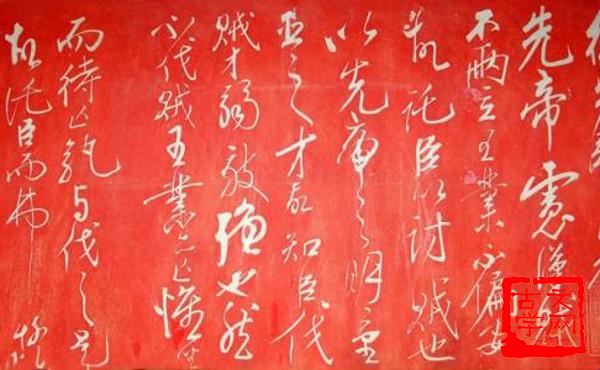 先帝慮漢賊
不兩立王業不偏安
故託臣以討賊也
以先帝之明量
臣之才故知臣伐
賊才弱敵強也然
不伐賊王業亦亡惟坐
而待亡孰與伐之是
故託臣而弗疑
古文
学网